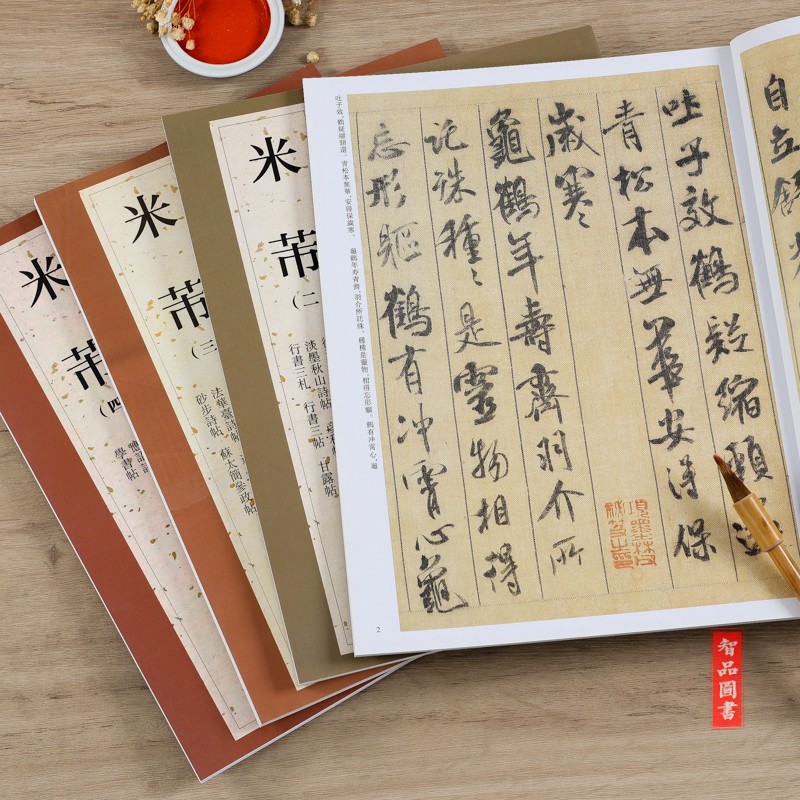 自立
吐子效鶴疑縮頸
青松本無華安得保
歲寒〻
龜鶴年壽齊羽介所
託殊種〻是靈物相得
忘形軀鶴有冲霄心龜
項墨林父
祕笈之印
吐子效，鶴疑縮頸還。青松本無華，安得保歲寒。 龜鶴年壽齊，羽介所託殊。種種是靈物，相得忘形軀。鶴有冲霄心，龜
2
米芾
（二
淡墨秋山詩帖
行書三札 行書三帖 甘露帖
米芾
（三
法華臺詩帖
砂步詩帖 蘇太簡參政帖
米芾
（四
學書帖
智品圖書